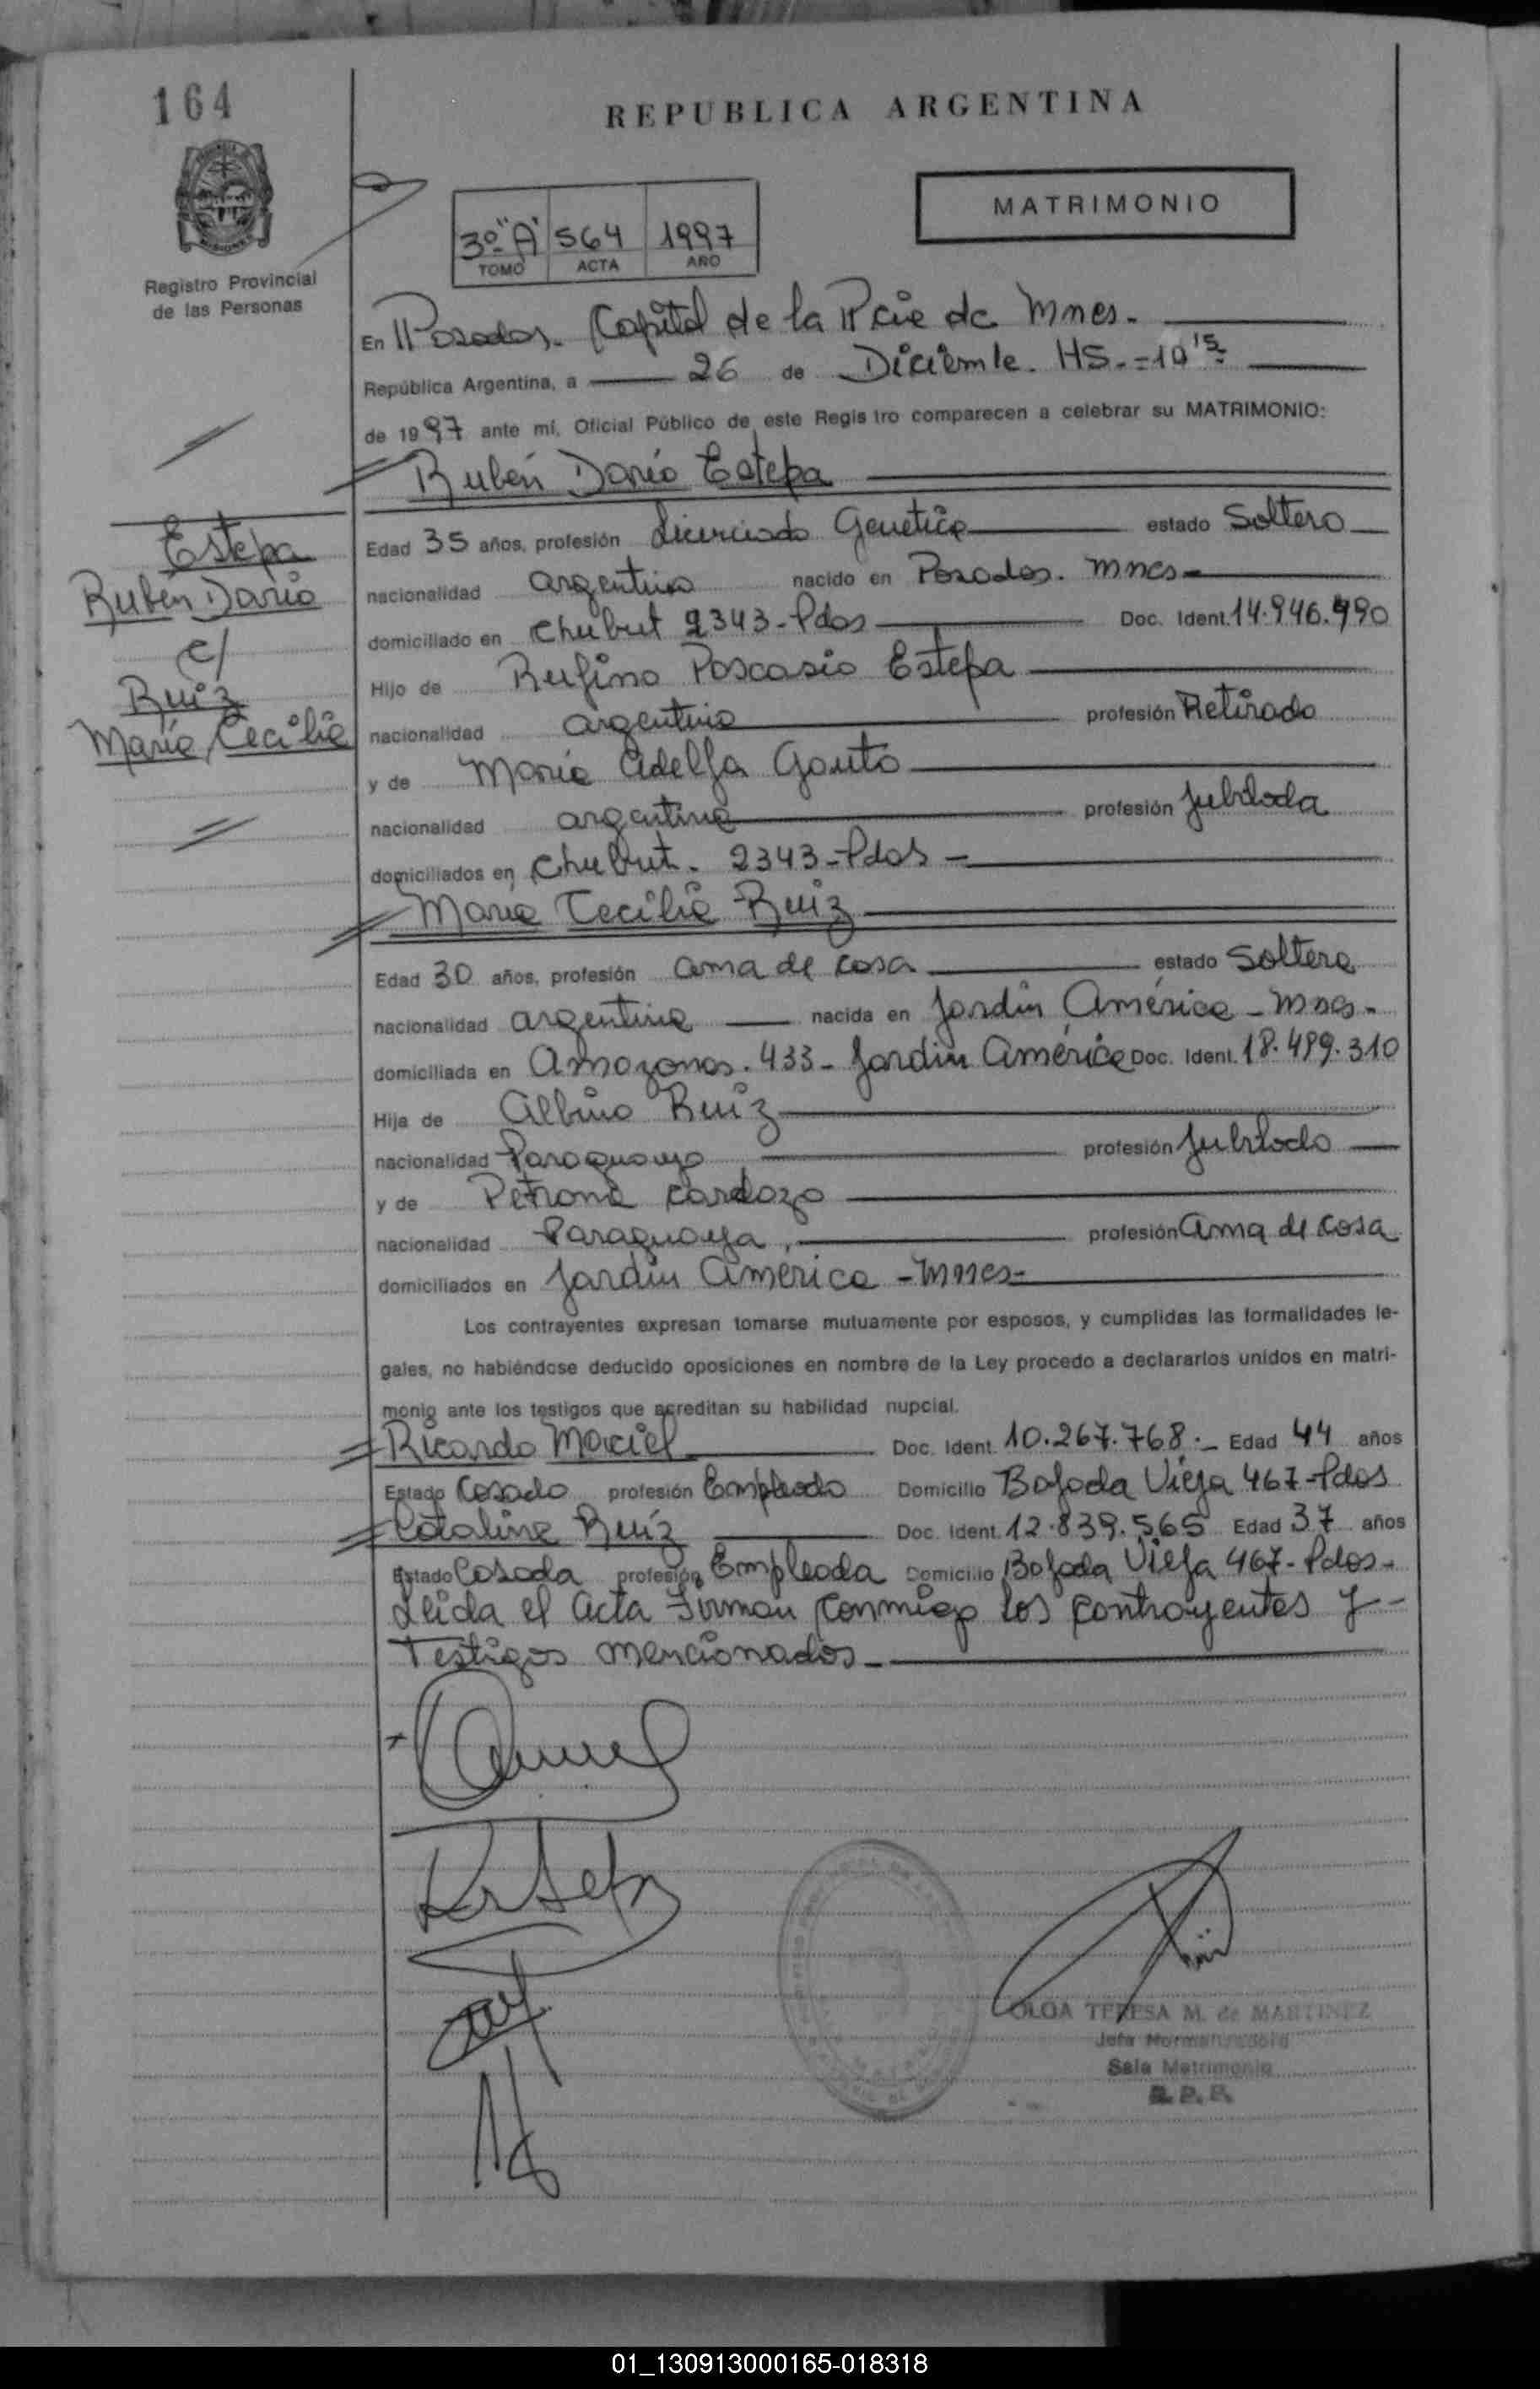 164
REPUBLICA ARGENTINA
MATRIMONIO
3º "A" 564 1997
TOMO ACTA AÑO
Registro Provincial
de las Personas
En Posadas. Capital de la Pcie de Mnes.
República Argentina, a 26 de Diciembre. HS.=10 15
de 1997 ante mí, Oficial Público de este Registro comparecen a celebrar su MATRIMONIO:
Rubén Darío Estepa
Estepa
Rubén Darío
c/
Ruiz
María Cecilia
Edad 35 años, profesión Licenciado Genetica estado Soltero
nacionalidad argentino nacido en Posadas. Mnes
domiciliado en Chubut 2343-Pdas Doc. Ident. 14.946.990
Hijo de Rufino Pascasio Estepa
nacionalidad argentino profesión Retirado
y de María Adelfa Gauto
nacionalidad argentina profesión Jubilada
domiciliados en Chubut. 2343-Pdas
María Cecilia Ruiz
Edad 30 años, profesión ama de casa estado Soltera
nacionalidad argentina nacida en Jardín América - Mnes.
domiciliada en Amazonas. 433- Jardín América Doc. Ident. 18.499.310
Hija de Albino Ruiz
nacionalidad Paraguayo profesión Jubilado
y de Petrona Cardozo
nacionalidad Paraguaya, profesión Ama de casa
domiciliados en Jardín América - Mnes-
Los contrayentes expresan tomarse mutuamente por esposos, y cumplidas las formalidades le-
gales, no habiéndose deducido oposiciones en nombre de la Ley procedo a declararlos unidos en matri-
monio ante los testigos que acreditan su habilidad nupcial.
Ricardo Maciel Doc. Ident. 10.267.768.- Edad 44 años
Estado Casado profesión Empleado Domicilio Bajada Vieja 467-Pdas
Catalina Ruiz Doc. Ident. 12.839.565 Edad 37 años
Estado Casada profesión Empleada Domicilio Bajada Vieja 467- Pdas-
Leida el Acta Firman conmigo los contrayentes y-
Testigos mencionados-
OLGA TERESA M. de MARTINEZ
Sala Matrimonio
R. P. P.
01_130913000165-018318